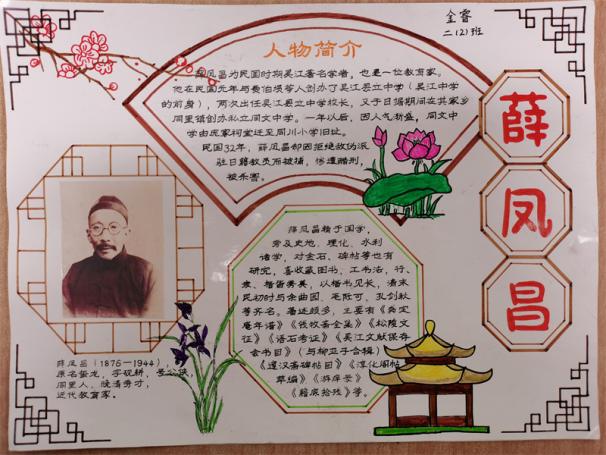 金睿
二(2)班
人物简介
薛凤昌为民国时期吴江著名学者，也是一位教育家。
他在民国元年与费伯埙等人创办了吴江县立中学（吴江中学
的前身），两次出任吴江县立中学校长，又于日据期间在其家乡
同里镇创办私立同文中学。一年以后，因人气渐盛，同文中
学由庞家祠堂迁至同川小学旧址。
民国32年，薛凤昌却因拒绝敌伪派
驻日籍教员而被捕，惨遭酷刑，
被杀害。
薛凤昌
薛凤昌精于国学，
旁及史地、理化、水利
诸学，对金石、碑帖等也有
研究，喜收藏图书，工书法，行、
隶、楷皆秀美，以楷书见长，清末
民初时与余曲园、毛附可、孔剑秋
等齐名。著述颇多，主要有《
庵年谱》《牧斋全集》《松陵文
征》《语石考证》《吴江文献保存
会书目》（与柳亚子合辑）
《邃汉斋碑帖目》《淳化阁帖
萃编》《游庠录》
《籍底拾残》等。
薛凤昌（1876—1944），
原名蛰龙，字砚耕，号公侠，
同里人，晚清秀才，
近代教育家。